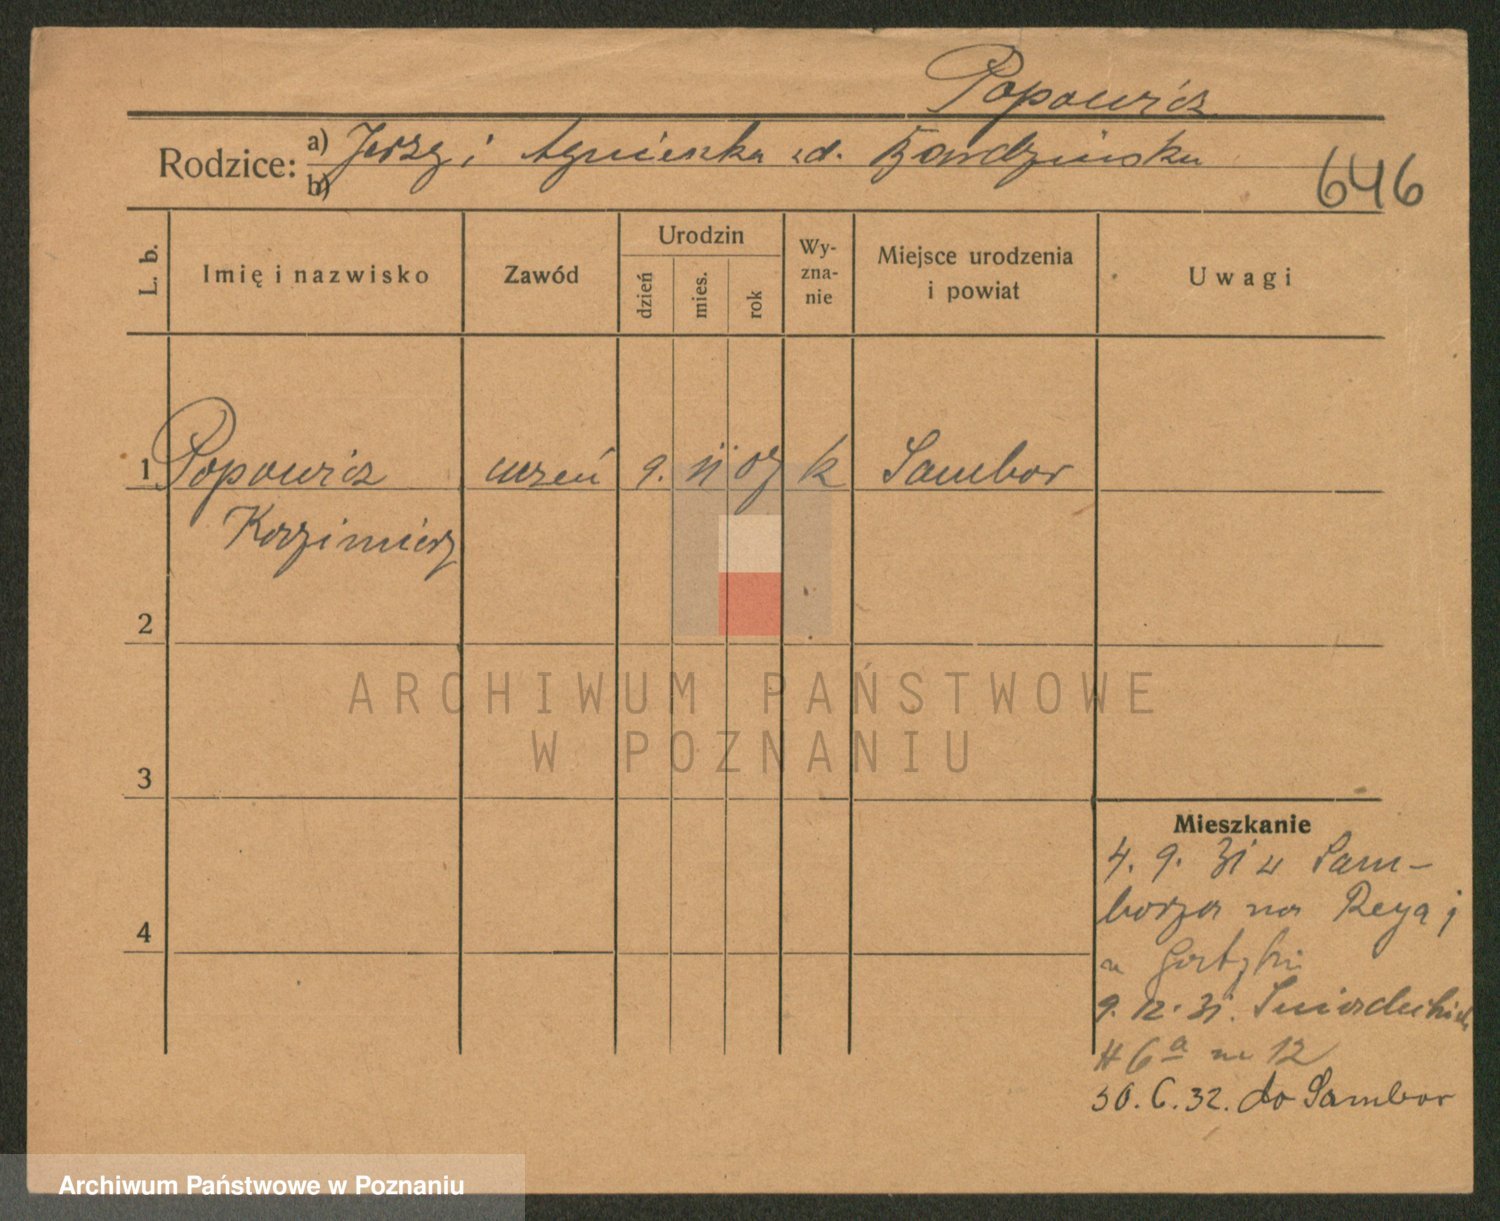 Popowicz
Rodzice: a) Jerzy i Agnieszka zd.
b)
646
L. b.
Imię i nazwisko
Zawód
Urodzin
dzień
mies.
rok
Wy-
zna-
nie
Miejsce urodzenia
i powiat
Uwagi
1 Popowicz uczeń 9. II 07 k Sambor
Kazimierz
2
3
4
Mieszkanie
4. 9. 31 z Sam-
borza na Reya 1
u
9. 12. 31. Śniadeckich
# 6a m 12
30. 6. 32. do Sambor
ARCHIWUM PAŃSTWOWE
W POZNANIU
Archiwum Państwowe w Poznaniu